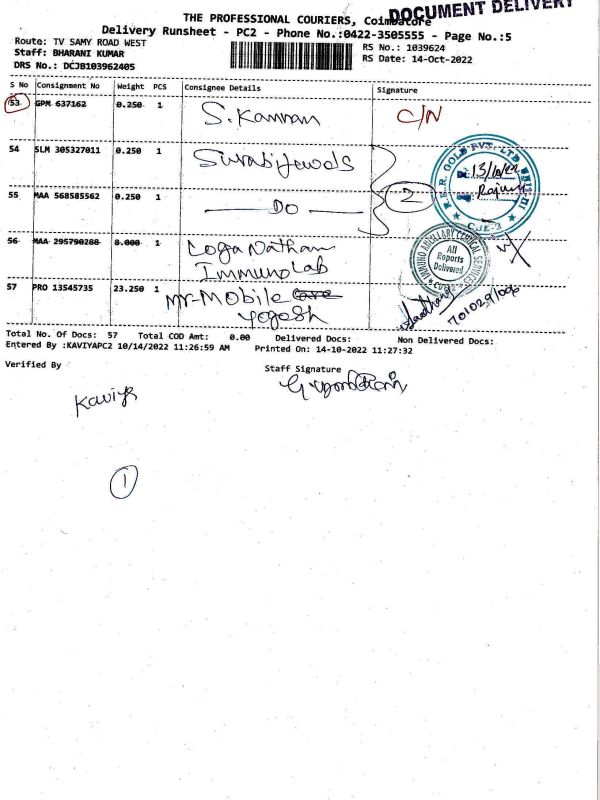 DOCUMENT DELIVERY
THE PROFESSIONAL COURIERS, Coimbatore
Delivery Runsheet - PC2 - Phone No.:0422-3505555 - Page No.:5
Route: TV SAMY ROAD WEST
RS No.: 1039624
Staff: BHARANI KUMAR
RS Date: 14-Oct-2022
DRS No.: DCJB103962405
S No Consignment No Weight PCS Consignee Details Signature
53 GPM 637162 0.250 1 S. Kannan C/N
54 SLM 305327011 0.250 1 Surabi Jewels
55 MAA 568585562 0.250 1 — DO — 2
E.R. GOLD PVT. LTD. UNIT-II
13/10/22
CJE-2
56 MAA 295790280 8.000 1 Loga Nathan
Immuno Lab
All
Reports
Delivered
57 PRO 13545735 23.250 1 Mr-Mobile Care
Yogesh
Total No. Of Docs: 57 Total COD Amt: 0.00 Delivered Docs: Non Delivered Docs:
Entered By :KAVIYAPC2 10/14/2022 11:26:59 AM Printed On: 14-10-2022 11:27:32
Verified By
Staff Signature
Kaviya
1